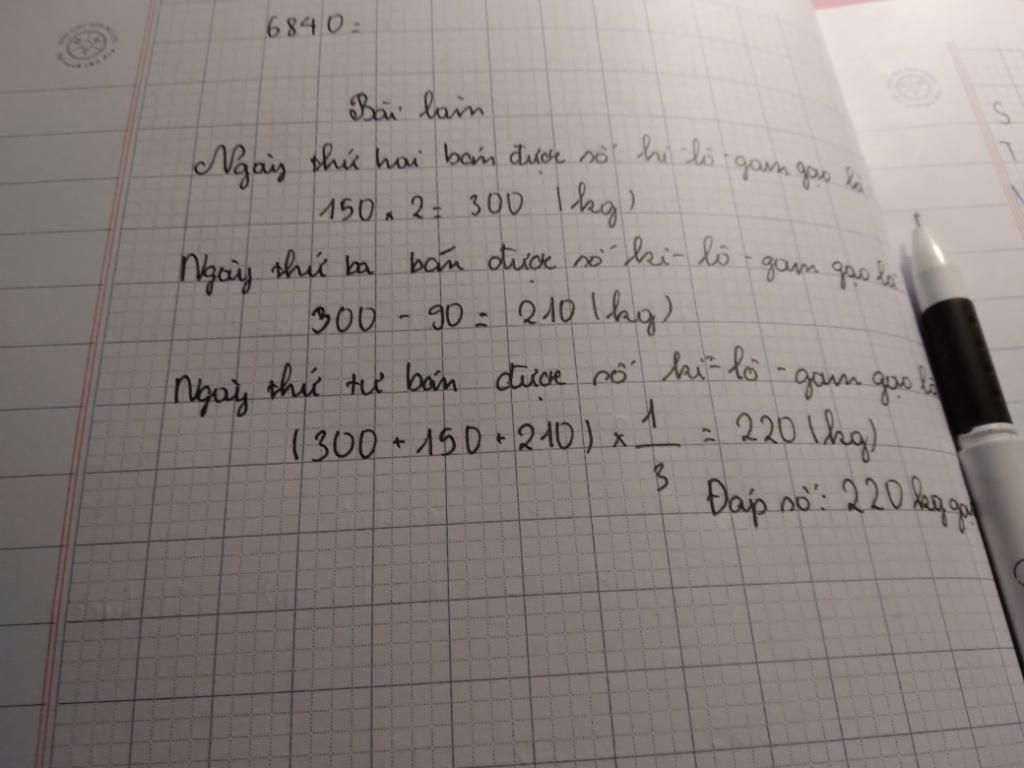 6840=
Bài làm
Ngày thứ hai bán được số ki-lô-gam gạo là
150 x 2 = 300 (kg)
Ngày thứ ba bán được số ki-lô-gam gạo là
300 - 90 = 210 (kg)
Ngày thứ tư bán được số ki-lô-gam gạo là
(300 + 150 + 210) x 1/3 = 220 (kg)
Đáp số: 220 kg